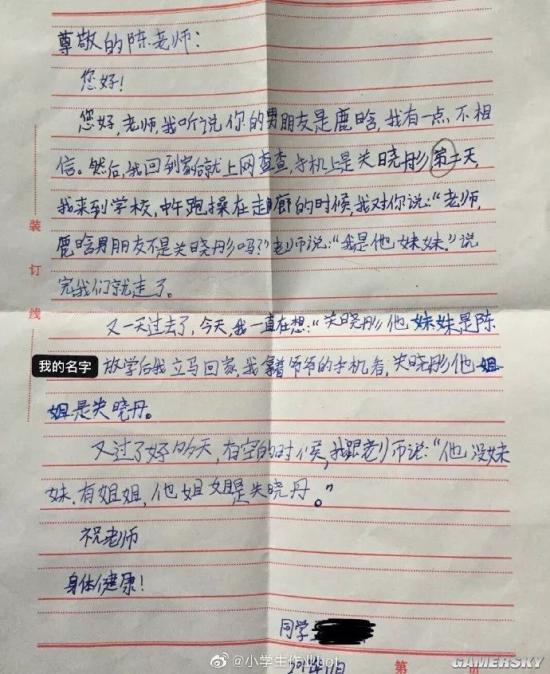 尊敬的陈老师：
您好！
您好，老师，我听说你的男朋友是鹿晗，我有一点不相
信。然后，我回到家后就上网查查，手机上是关晓彤，第二天
我来到学校，中午跑操在走廊的时候，我对你说：“老师，
鹿晗男朋友不是关晓彤吗？”老师说：“我是他妹妹。”说
完我们就走了。
又一天过去了，今天，我一直在想：“关晓彤他妹妹是陈
我的名字
放学后我立马回家，我拿着爷爷的手机看，关晓彤他姐
姐是关晓丹。
又过了好多天，有空的时候，我跟老师说：“他没妹
妹，有姐姐，他姐姐是关晓丹。”
祝老师
身体健康！
同学
装
订
线
@小学生作业bot
第
页
GAMERSKY